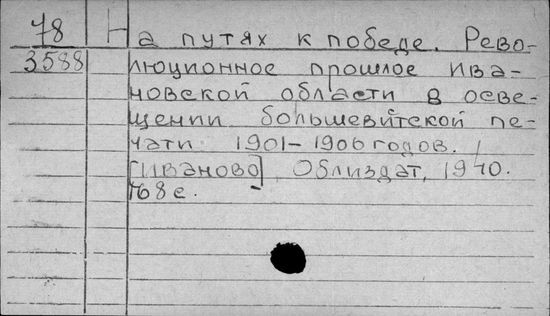 78 На путях к победе. Рево-
3588 люционное прошлое Ива-
новской области в осве-
щении большевитской пе-
чати 1901-1906 годов.
[Иваново], Облиздат, 1940.
168 с.